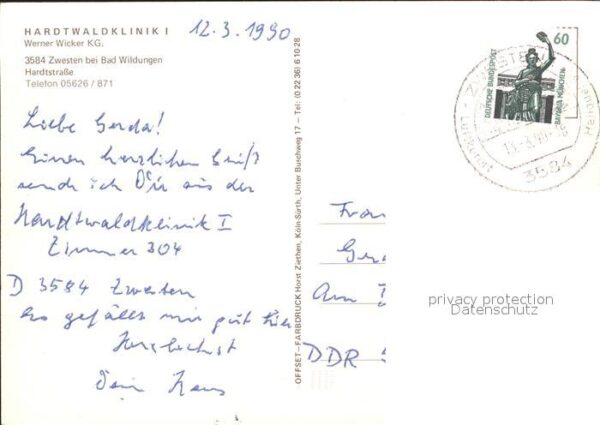 HARDTWALDKLINIK I
Werner Wicker KG.
3584 Zwesten bei Bad Wildungen
Hardtstraße
Telefon 05626 / 871
12.3.1990
Liebe Gerda!
Einen herzlichen Gruß
sende ich Dir aus der
Hardtwaldklinik I
Zimmer 304
D 3584 Zwesten
Es gefällt mir gut hier
Herzlichst
Dein Hans
OFFSET-FARBDRUCK Horst Ziethen, Köln-Sürth, Unter Buschweg 17 – Tel: (0 22 36) 6 10 28
60
DEUTSCHE BUNDESPOST
BAVARIA MÜNCHEN
Luftkurort
3584
Frau
Am
DDR
privacy protection
Datenschutz